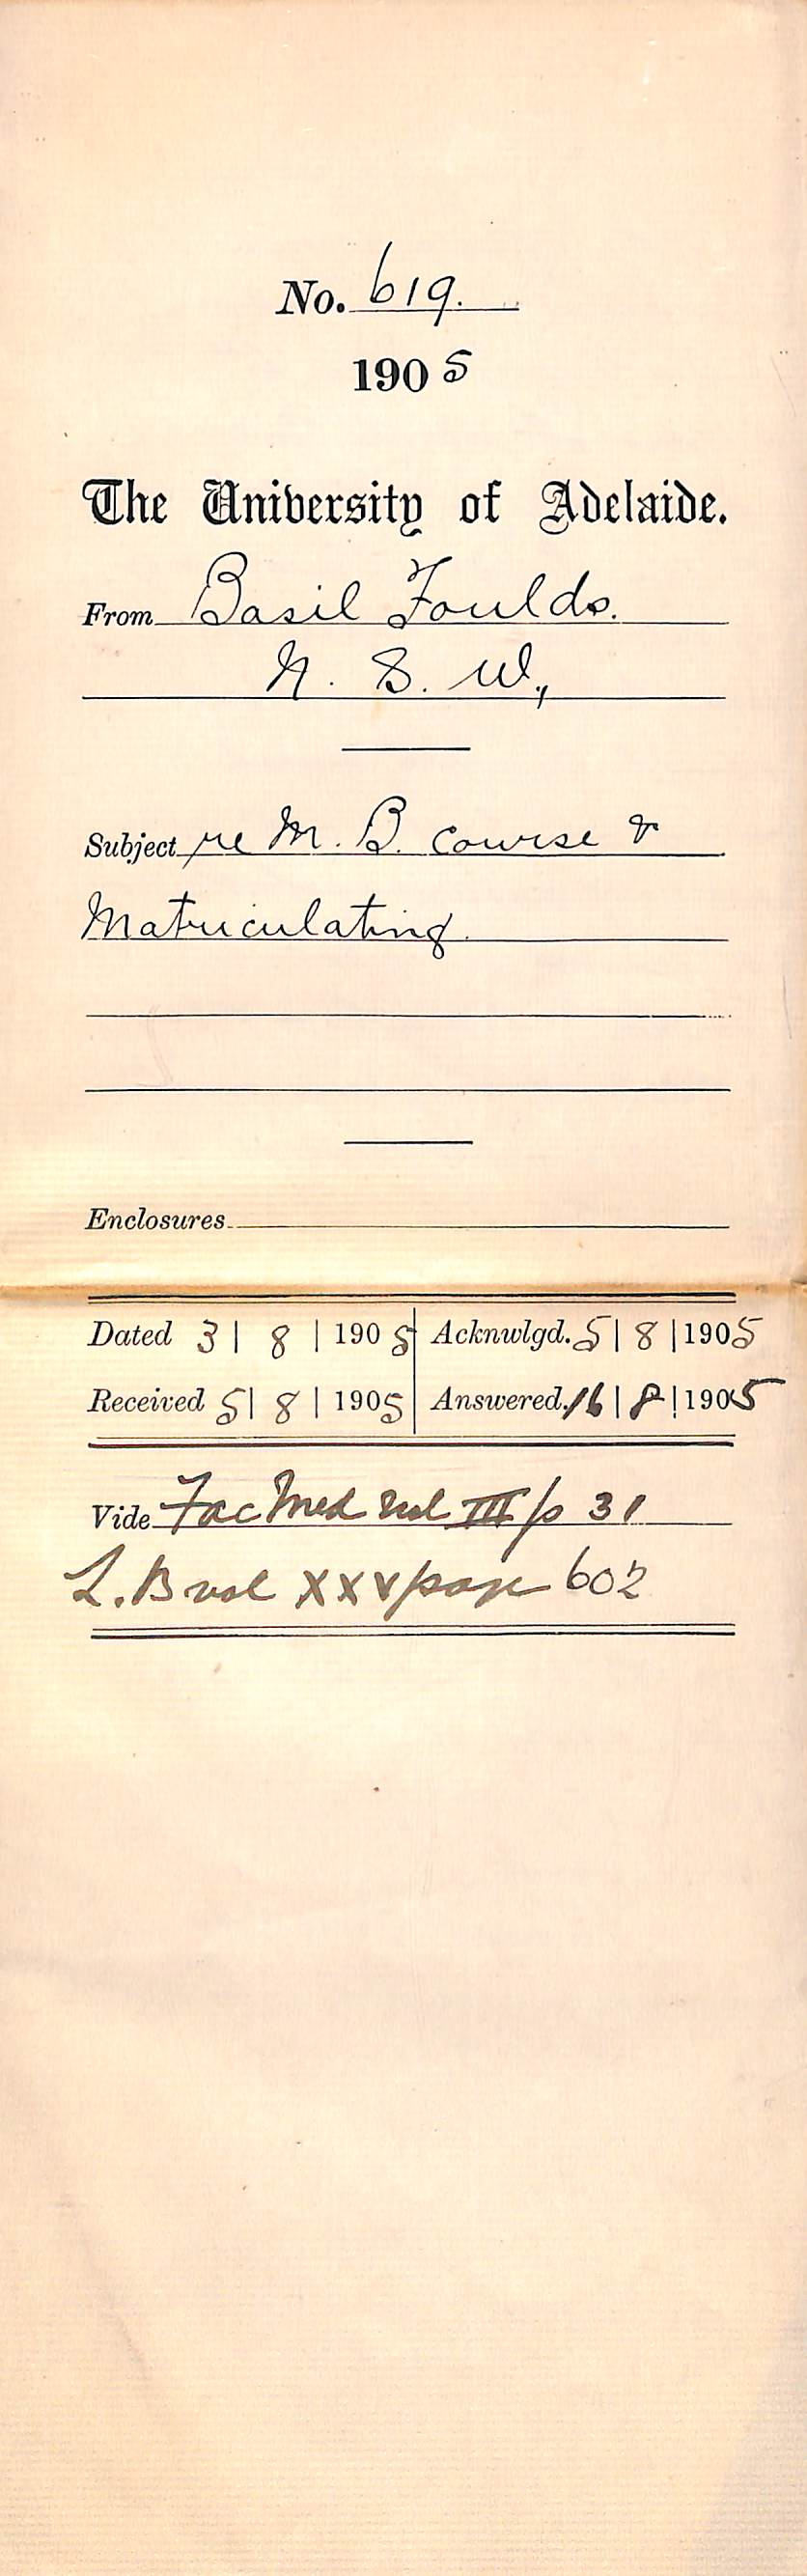 No. 619.
1905
The University of Adelaide.
From Basil Foulds.
N. S. W.,
Subject re M. B. course &
Matriculating.
Enclosures
Dated 3 | 8 | 1905 Acknwlgd. 5 | 8 | 1905
Received 5 | 8 | 1905 Answered. 16 | 8 | 1905
Vide Fac Med vol III p 31
L. B vol XXV page 602